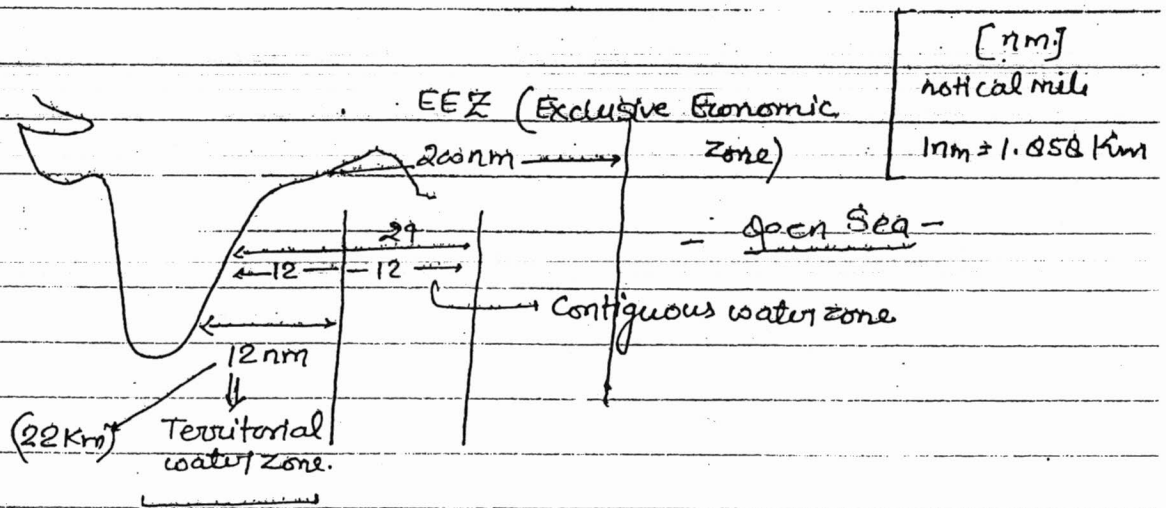 [nm.]
notical mile
1nm = 1.858 Km
EEZ (Exclusive Economic
Zone)
200nm
24
12 12
- Open Sea -
Contiguous water zone
12nm
(22Km)
Territorial
water zone.